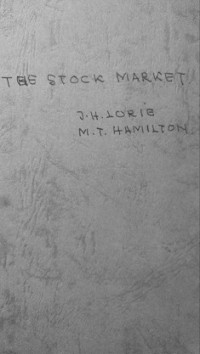 THE STOCK MARKET
J.H. LORIE
M.T. HAMILTON